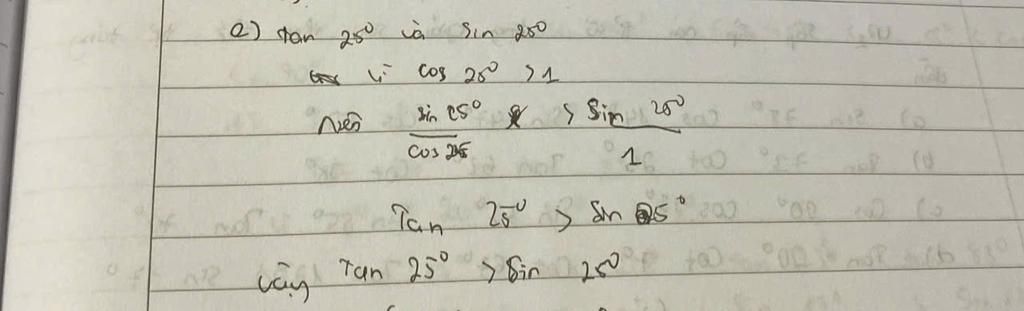 a) tan 25° và sin 25°
Vì cos 25° > 1
Nên sin 25° / cos 25 > sin 25° / 1
Tan 25° > Sin 25°
Vậy Tan 25° > Sin 25°